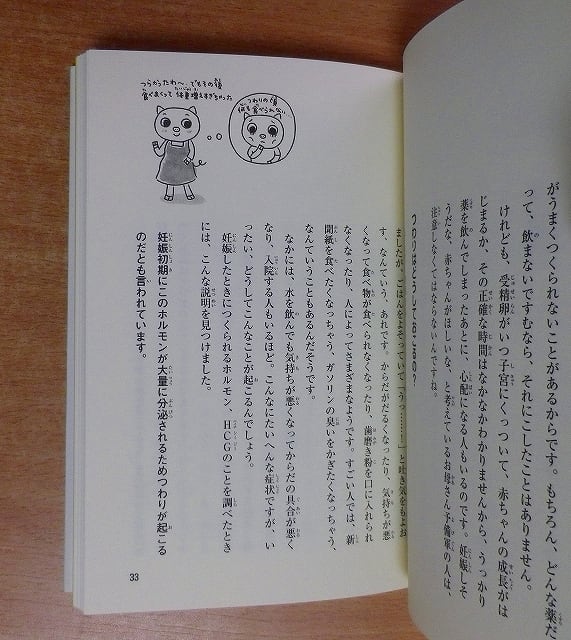 がうまくつくられないことがあるからです。もちろん、どんな薬だ
って、飲まないですむなら、それにこしたことはありません。
けれども、受精卵がいつ子宮にくっついて、赤ちゃんの成長がは
じまるか、その正確な時間はなかなかわかりませんから、うっかり
薬を飲んでしまったあとに、心配になる人もいるのです。妊娠しそ
うだな、赤ちゃんがほしいな、と考えているお母さん予備軍の人は、
注意しなくてはならないんですね。
つわりはどうしておこるの?
ましたが、ごはんをよそっていて「うっ……!」と吐き気をもよお
す、なんていう、あれです。からだがだるくなったり、気持ちが悪
くなって食べ物が食べられなくなったり、歯磨き粉を口に入れられ
なくなったり、人によってさまざまなようです。すごい人では、新
聞紙を食べたくなっちゃう、ガソリンの臭いをかぎたくなっちゃう、
なんていうこともあるんだそうです。
なかには、水を飲んでも気持ちが悪くなってからだの具合が悪く
なり、入院する人もいるほど。こんなにたいへんな症状ですが、い
ったい、どうしてこんなことが起こるんでしょう。
妊娠したときにつくられるホルモン、HCGのことを調べたとき
には、こんな説明を見つけました。
妊娠初期にこのホルモンが大量に分泌されるためつわりが起こる
のだとも言われています。
つらかったわ〜、でもその後
食べまくって体重増えすぎちゃった
つわりの頃
何も食べられない
33